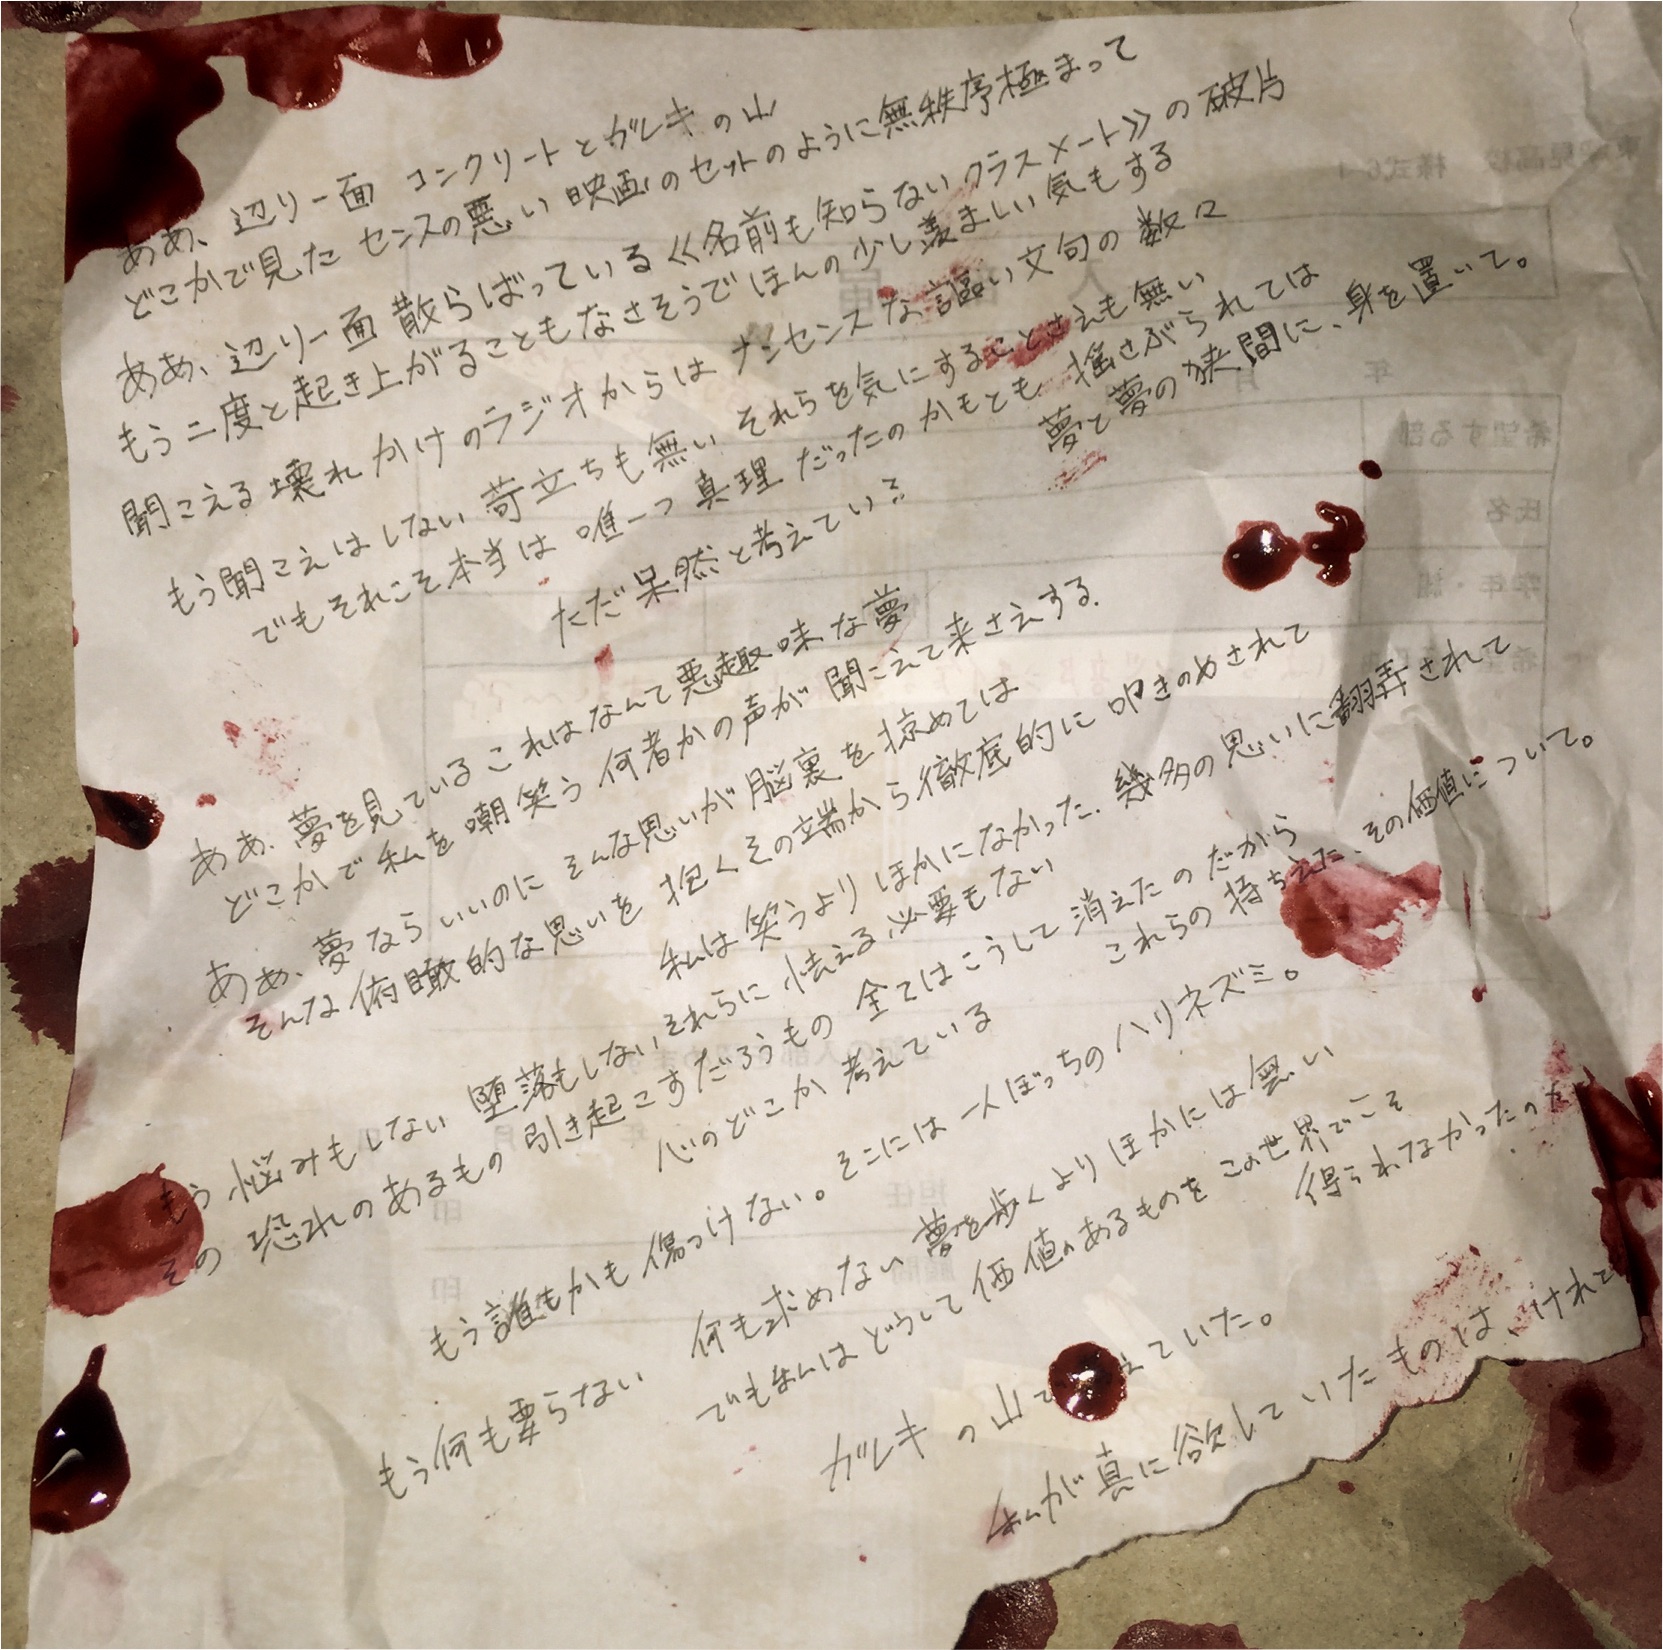 ああ、辺り一面 コンクリートとガレキの山
どこかで見た センスの悪い 映画のセットのように無秩序極まって
ああ、辺り一面 散らばっている≪名前も知らないクラスメート≫の破片
もう二度と起き上がることもなさそうでほんの少し羨ましい気もする
聞こえる壊れかけのラジオからは ナンセンスな謳い文句の数々
もう聞こえはしない 苛立ちも無い それらを気にすることさえも無い
でもそれこそ本当は 唯一つ真理 だったのかもとも 揺さぶられては
夢と夢の狭間に、身を置いて。
ただ呆然と考えている
ああ、夢を見ている これはなんて悪趣味な夢
どこかで私を嘲笑う 何者かの声が聞こえて来さえする.
ああ、夢ならいいのに そんな思いが脳裏を掠めては
そんな俯瞰的な思いを 抱くその端から徹底的に 叩きのめされて
私は笑うよりほかになかった. 幾多の思いに翻弄されて
もう悩みもしない 堕落もしない それらに怯える必要もない
その恐れのあるもの 引き起こすだろうもの 全てはこうして消えたのだから
これらの持ちえた、その価値について。
心のどこか 考えている
もう誰もかも傷つけない。そこには一人ぼっちのハリネズミ。
もう何も要らない 何も求めない 夢を歩くよりほかには無い
でも私はどうして価値のあるものをこの世界でこそ
得られなかったのだ
ガレキの山で ていた。
私が真に欲していたものは、けれど
希望する部
氏名
学年・組
年
月
担任
印
顧問
印
様式6-1